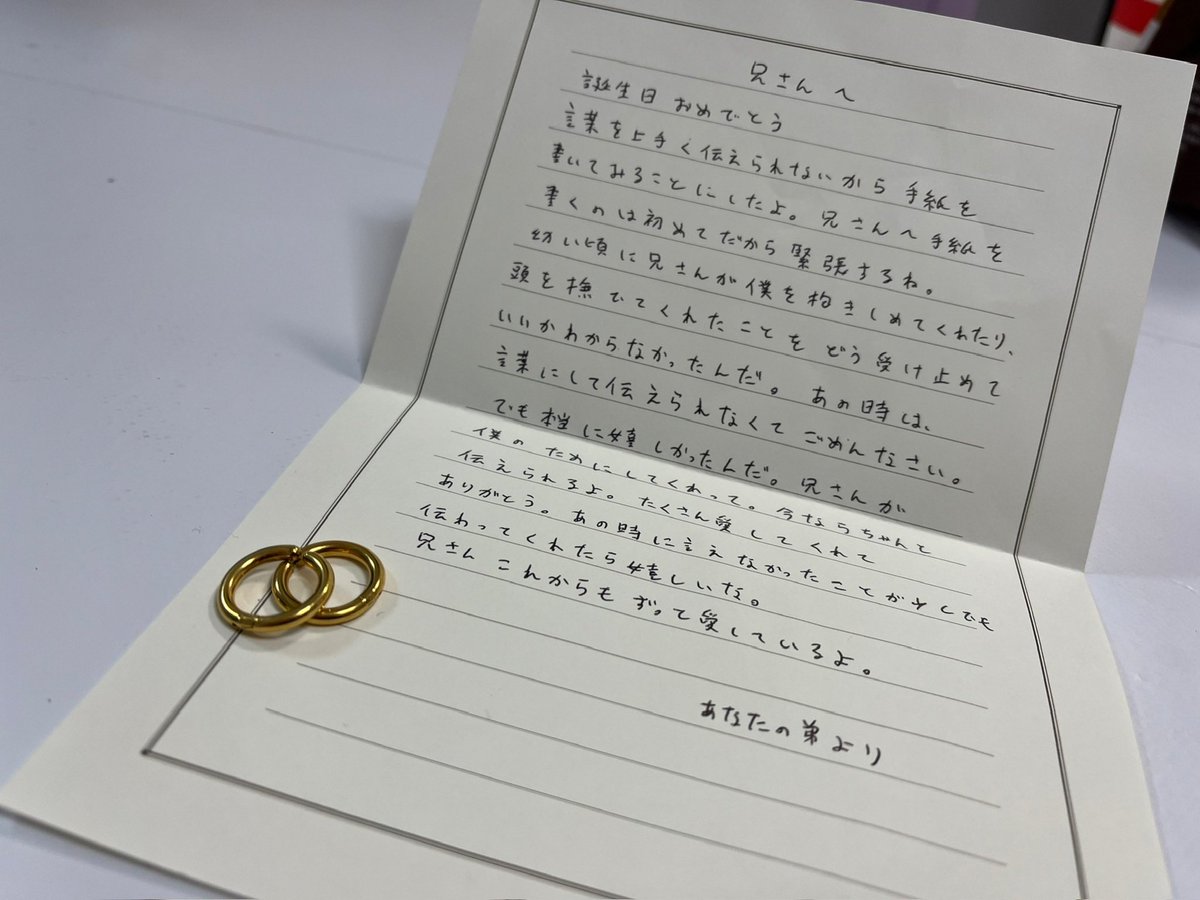 兄さんへ
誕生日 おめでとう
言葉を上手く伝えられないから 手紙を
書いてみることにしたよ。兄さんへ手紙を
書くのは初めてだから緊張するね。
幼い頃に兄さんが僕を抱きしめてくれたり、
頭を撫でてくれたことを どう受け止めて
いいかわからなかったんだ。あの時は、
言葉にして伝えられなくて ごめんなさい。
でも本当に嬉しかったんだ。兄さんが
僕の ためにしてくれって。今ならちゃんと
伝えられるよ。たくさん愛してくれて
ありがとう。あの時に言えなかったことが少しでも
伝わってくれたら嬉しいな。
兄さん これからも ずって愛しているよ。
あなたの弟より